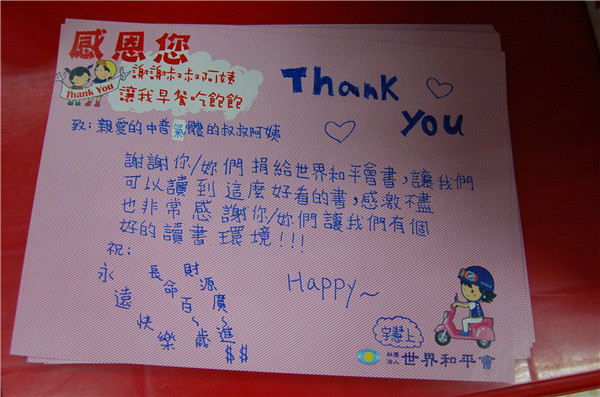 感恩您
謝謝叔叔阿姨
讓我早餐吃飽飽
Thank You
Thank
You
致：親愛的中普氣體的叔叔阿姨
謝謝你/妳們捐給世界和平會書,讓我們
可以讀到這麼好看的書,感激不盡
也非常感謝你/妳們讓我們有個
好的讀書環境!!!
祝：
永遠快樂
長命百歲
財源廣進
$$
Happy~
字慧上
社團法人世界和平會